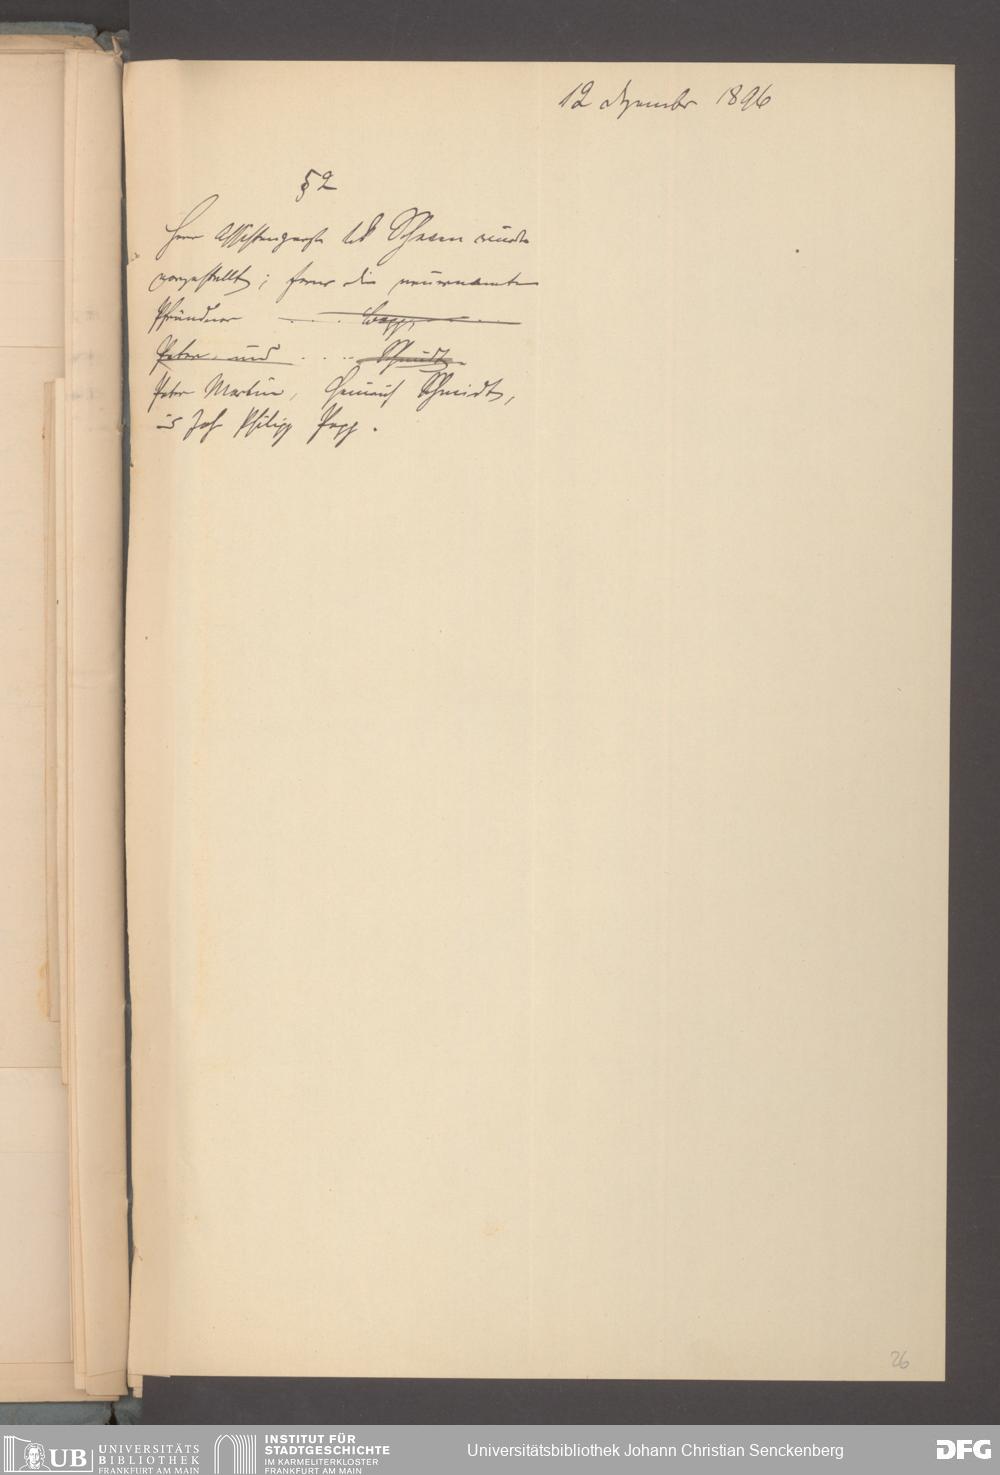 12 Dezember 1896
§ 2
Herr Assistenzarzt wurde
vorgestellt; ferner die neuernannten
Pfründner
Peter und Schmidt
Peter Martin, Heinrich Schmidt,
u Joh Philipp Popp.
26
UB UNIVERSITÄTS
BIBLIOTHEK
FRANKFURT AM MAIN
INSTITUT FÜR
STADTGESCHICHTE
IM KARMELITERKLOSTER
FRANKFURT AM MAIN
Universitätsbibliothek Johann Christian Senckenberg
DFG